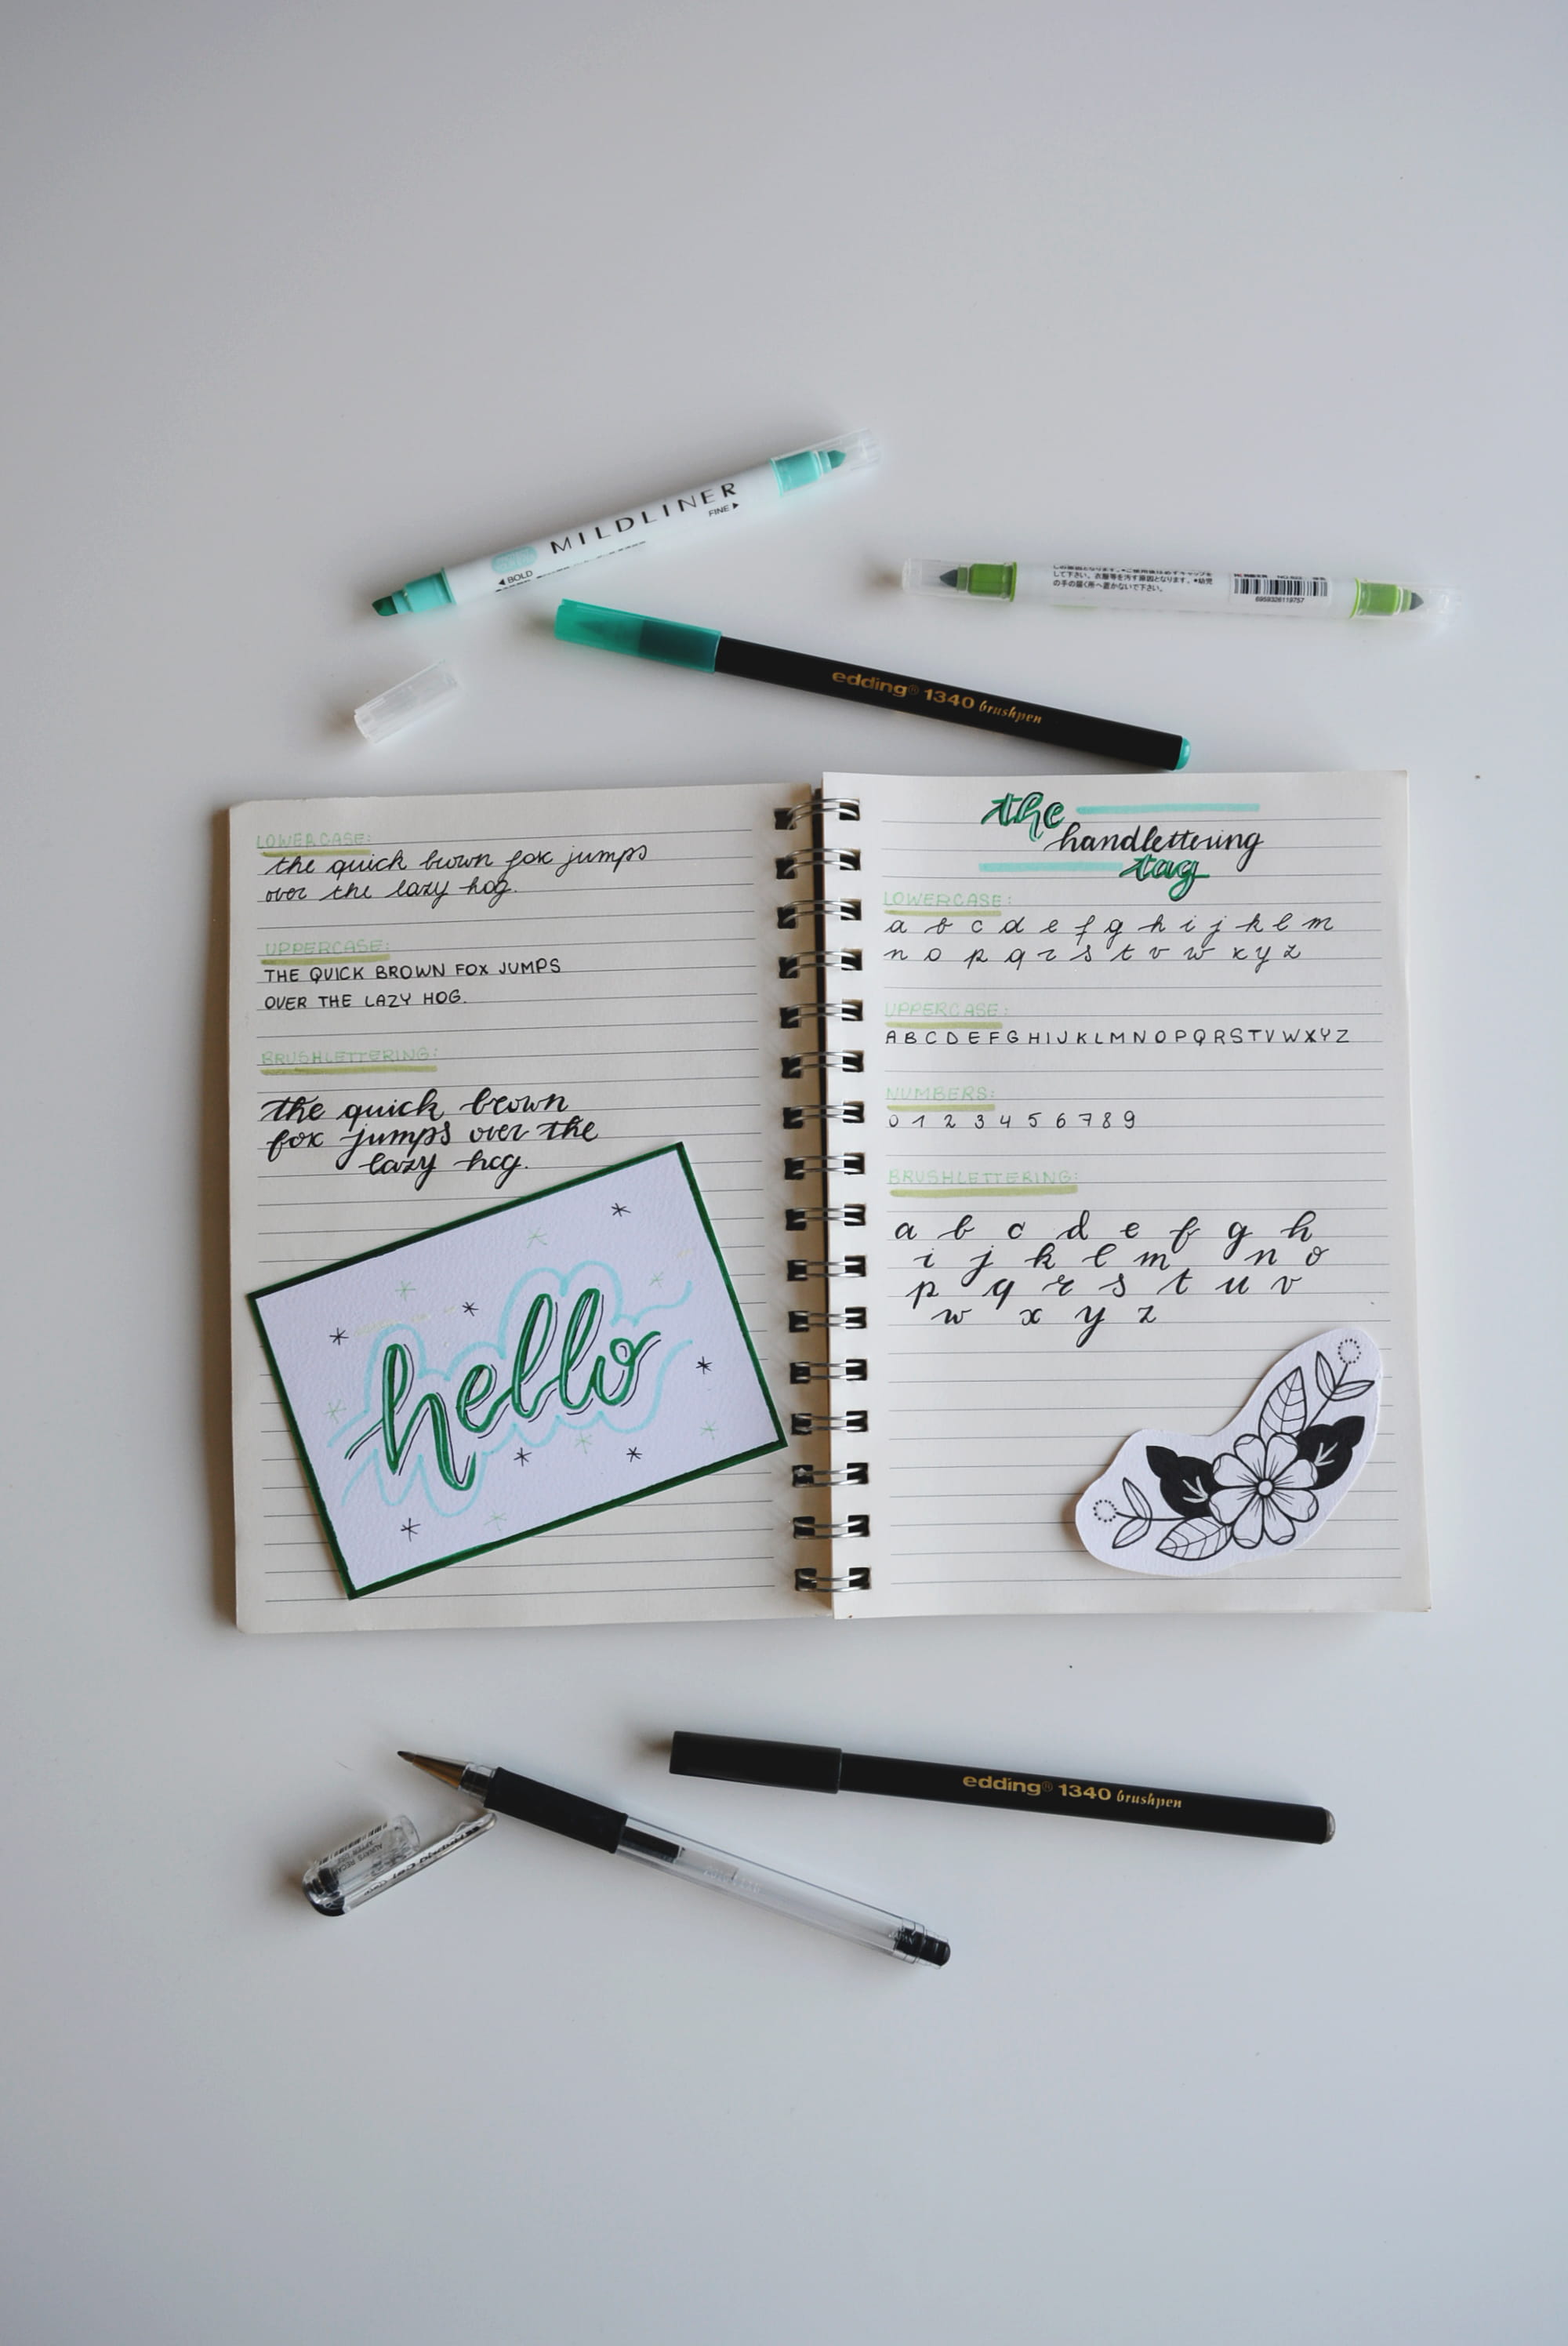 MILDLINER
FINE
BOLD
して下さい。衣服等を汚す原因となります。•幼児
の手の届く所へ置かないで下さい。
edding® 1340 brushpen
LOWERCASE:
the quick brown fox jumps
over the lazy hog.
UPPERCASE:
THE QUICK BROWN FOX JUMPS
OVER THE LAZY HOG.
BRUSHLETTERING:
the quick brown
fox jumps over the
lazy hog.
hello
the
handlettering
tag
LOWERCASE:
a b c d e f g h i j k l m
n o p q r s t v w x y z
UPPERCASE:
A B C D E F G H I J K L M N O P Q R S T V W X Y Z
NUMBERS:
0 1 2 3 4 5 6 7 8 9
BRUSHLETTERING:
a b c d e f g h
i j k l m n o
p q r s t u v
w x y z
edding® 1340 brushpen